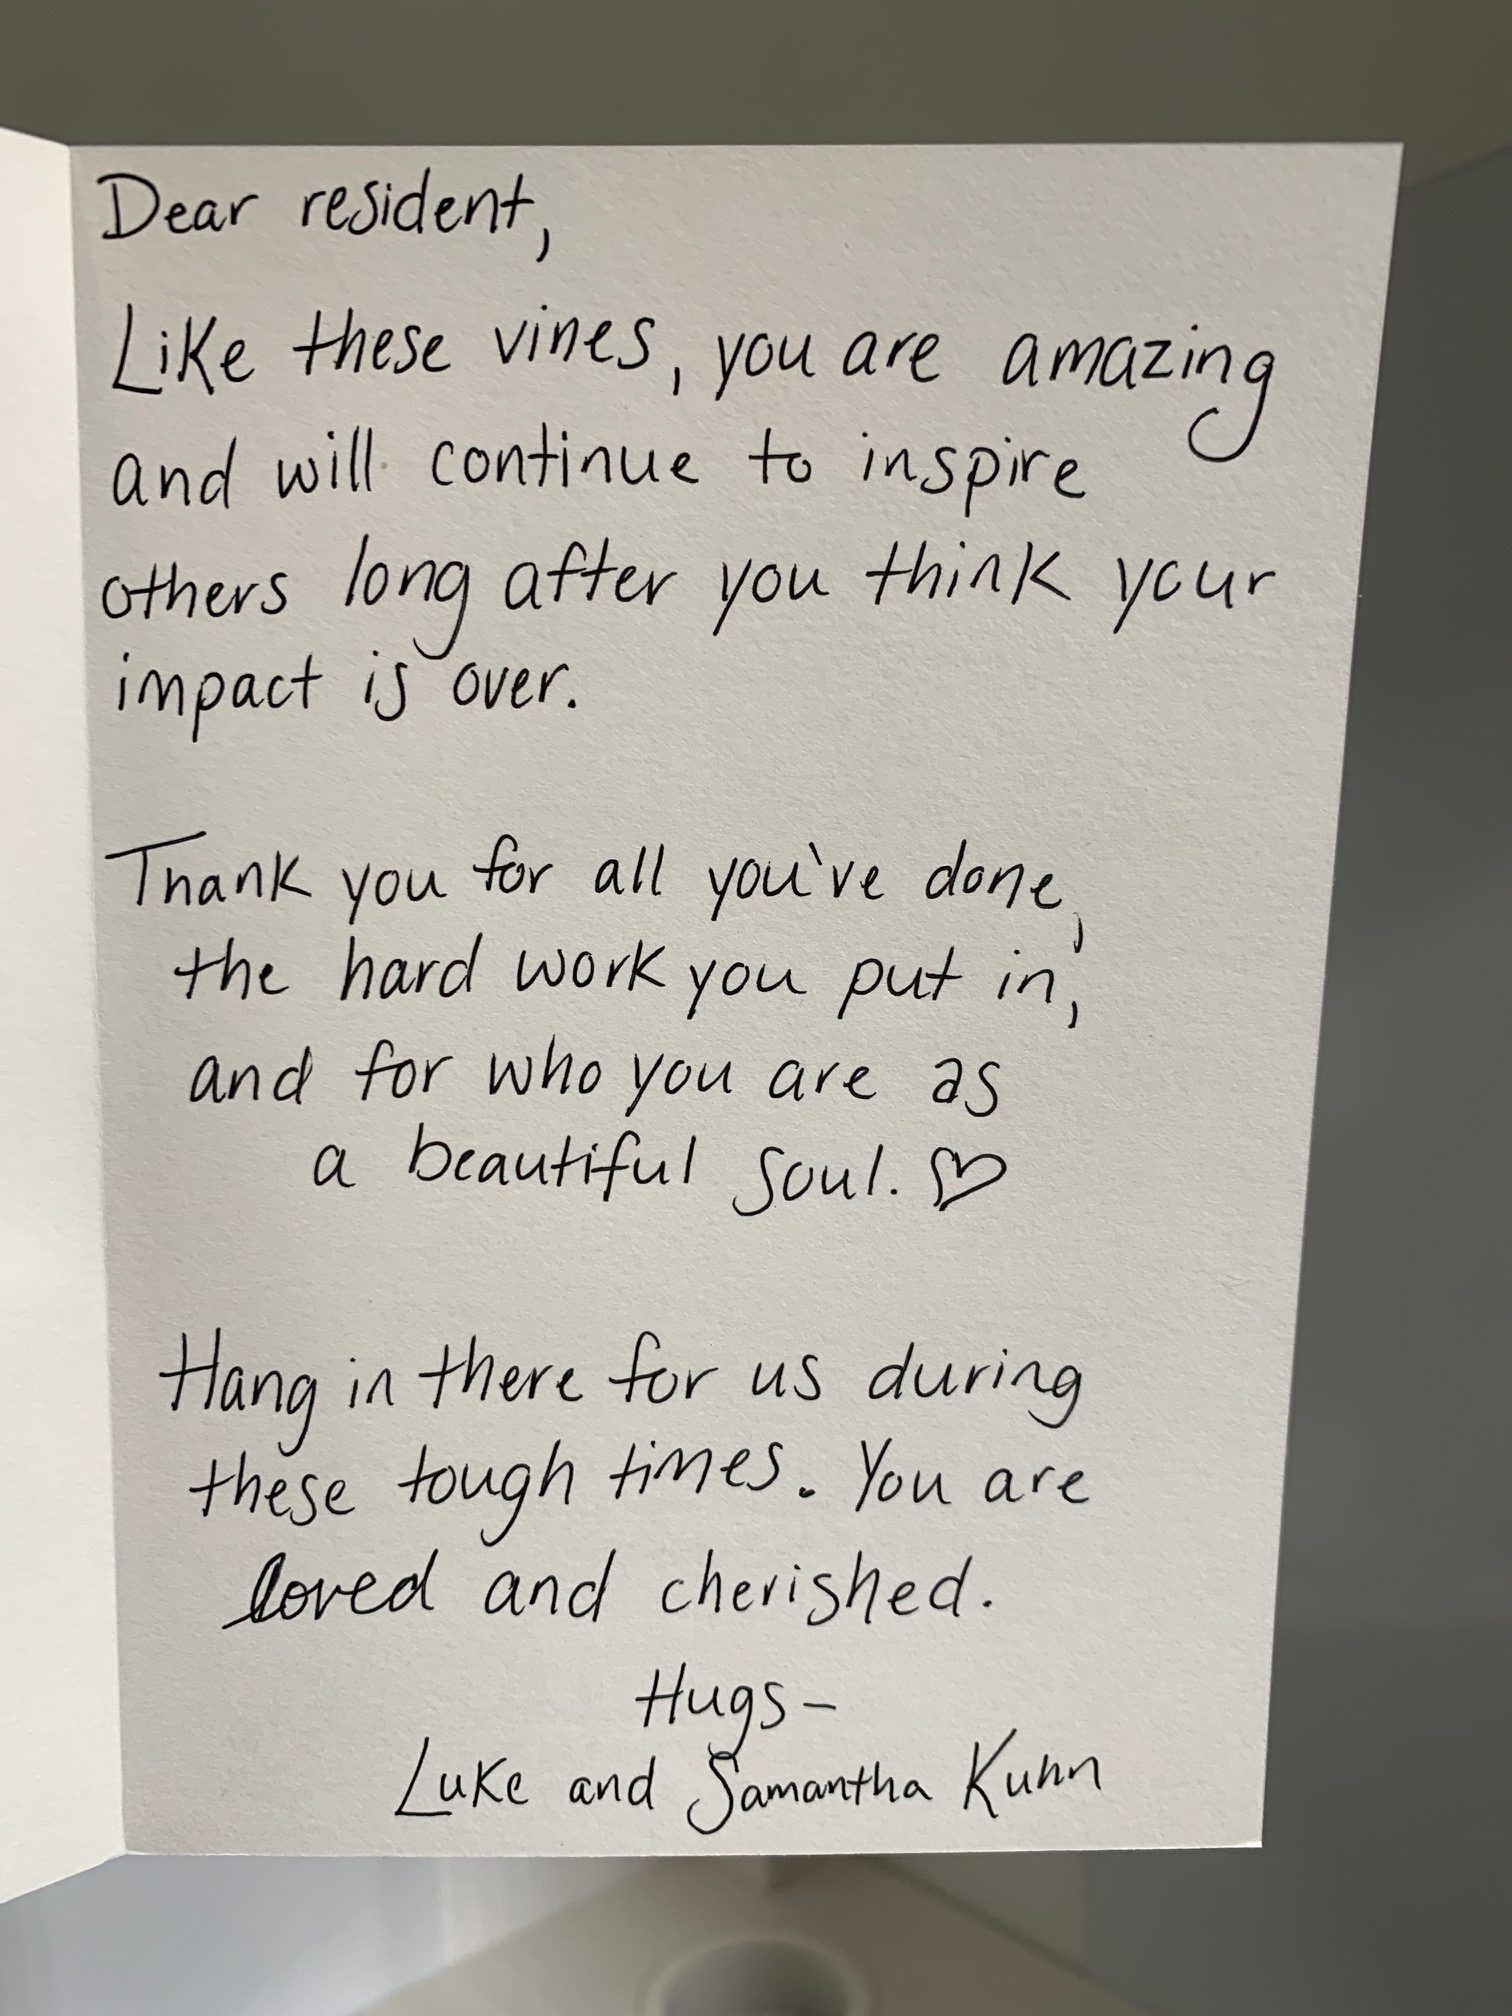 Dear resident,
Like these vines, you are amazing
and will continue to inspire
others long after you think your
impact is over.
Thank you for all you've done,
the hard work you put in,
and for who you are as
a beautiful soul. ♡
Hang in there for us during
these tough times. You are
loved and cherished.
Hugs –
Luke and Samantha Kuhn